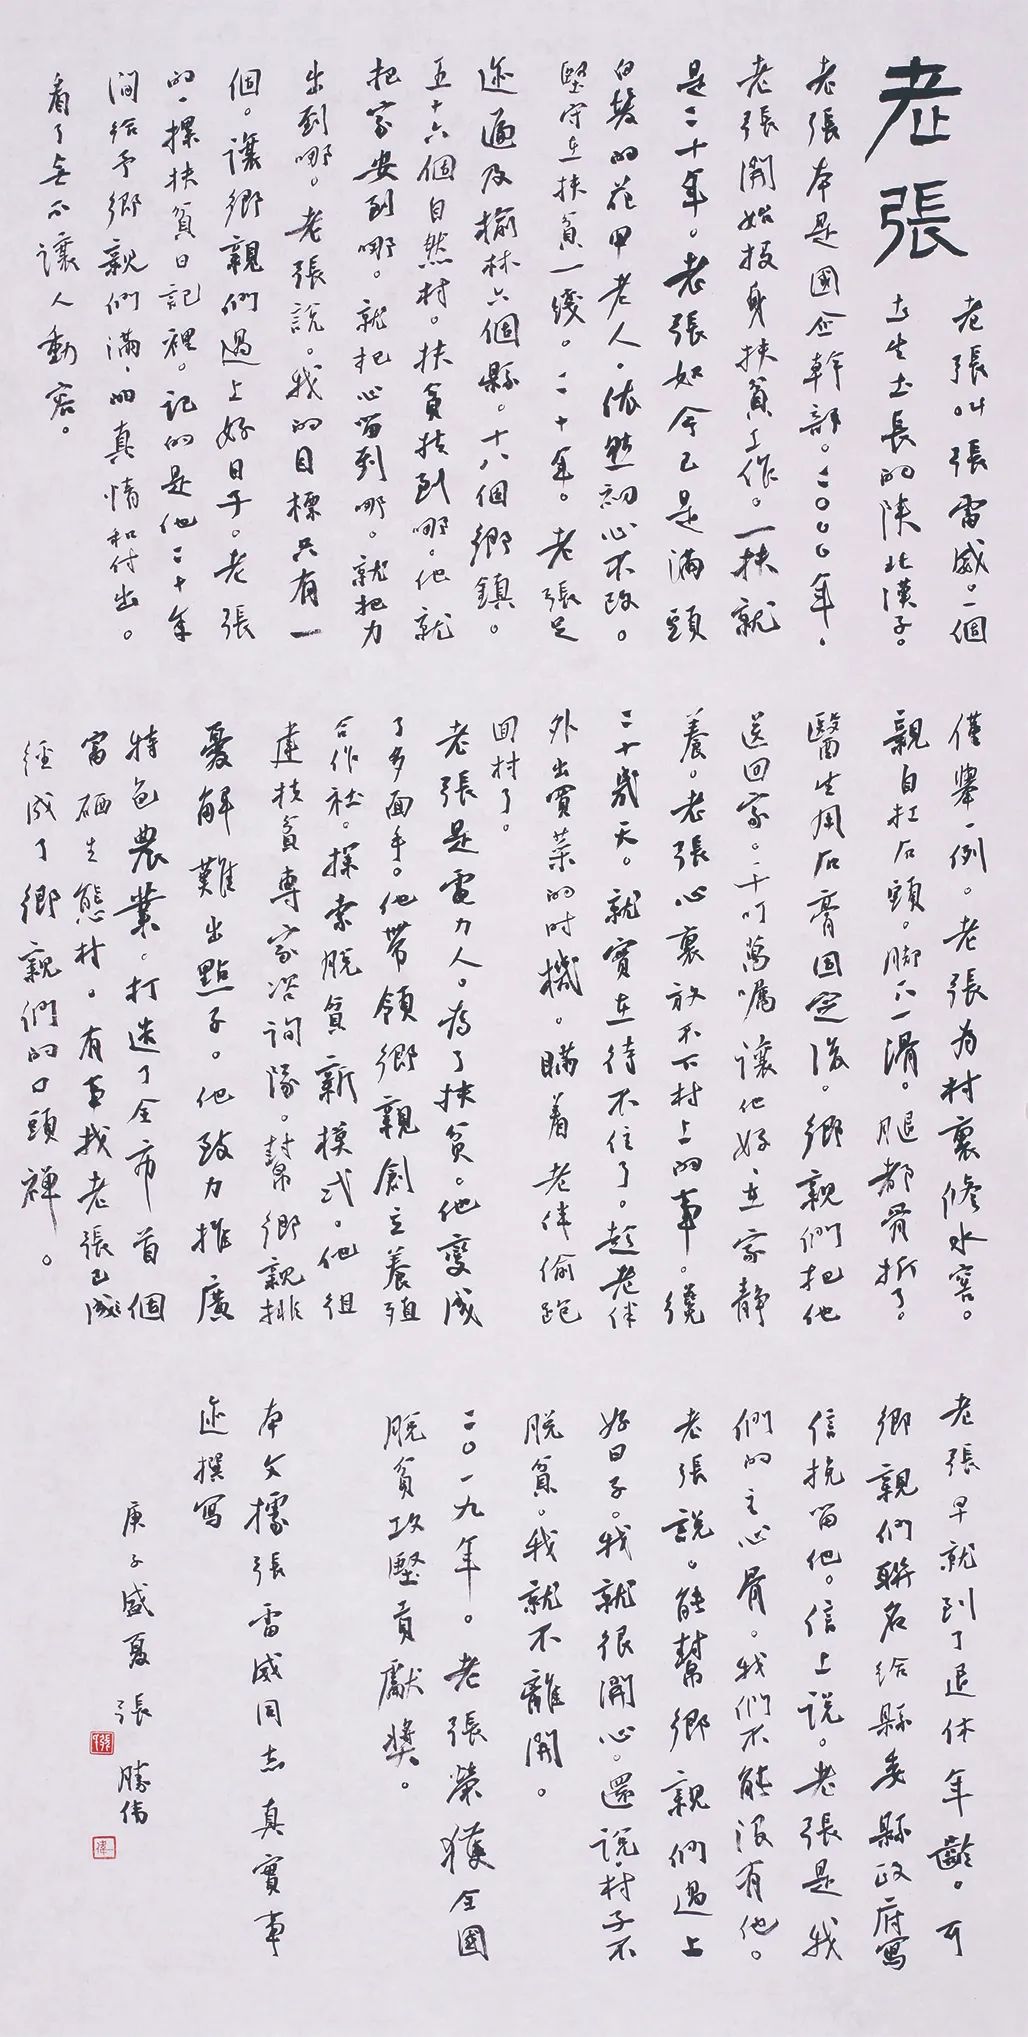 老張
老張叫張雷威。一個
土生土長的陝北漢子。
老張本是國企幹部。二〇〇〇年.
老張開始投身扶貧工作。一扶就
是二十年。老張如今已是滿頭
白髮的花甲老人.依然初心不改。
堅守在扶貧一綫。二十年。老張足
迹遍及榆林六個縣。十八個鄉鎮。
五十六個自然村。扶貧扶到哪。他就
把家安到哪。就把心留到哪。就把力
出到哪。老張説。我的目標只有一
個。讓鄉親們過上好日子。老張
的一摞扶貧日記裡。記的是他二十年
间給予鄉親們滿滿的真情和付出。
看了無不讓人動容。
僅舉一例。老張为村裏修水窖。
親自扛石頭。脚下一滑。腿都骨折了。
醫生用石膏固定後。鄉親們把他
送回家。千叮萬囑讓他好在家静
養。老張心裏放不下村上的事。纔
二十幾天。就實在待不住了。趁老伴
外出買菜的时機。瞞着老伴偷跑
回村了。
老張是電力人。为了扶貧。他變成
了多面手。他帶領鄉親創立養殖
合作社。探索脱貧新模式。他组
建扶貧專家咨詢隊。幫鄉親排
憂解難出點子。他致力推廣
特色農業。打造了全市首個
富硒生態村。有事找老張已成
經成了鄉親們的口頭禅。
老張早就到了退休年齡。可
鄉親們聯名給縣委縣政府寫
信挽留他。信上説。老張是我
們的主心骨。我們不能没有他。
老張説。能幫鄉親們過上
好日子。我就很開心。還説.村子不
脱貧。我就不離開。
二〇一九年。老張榮獲全國
脱貧攻堅貢獻獎。
本文據張雷威同志真實事
迹撰寫
庚子盛夏張勝偉